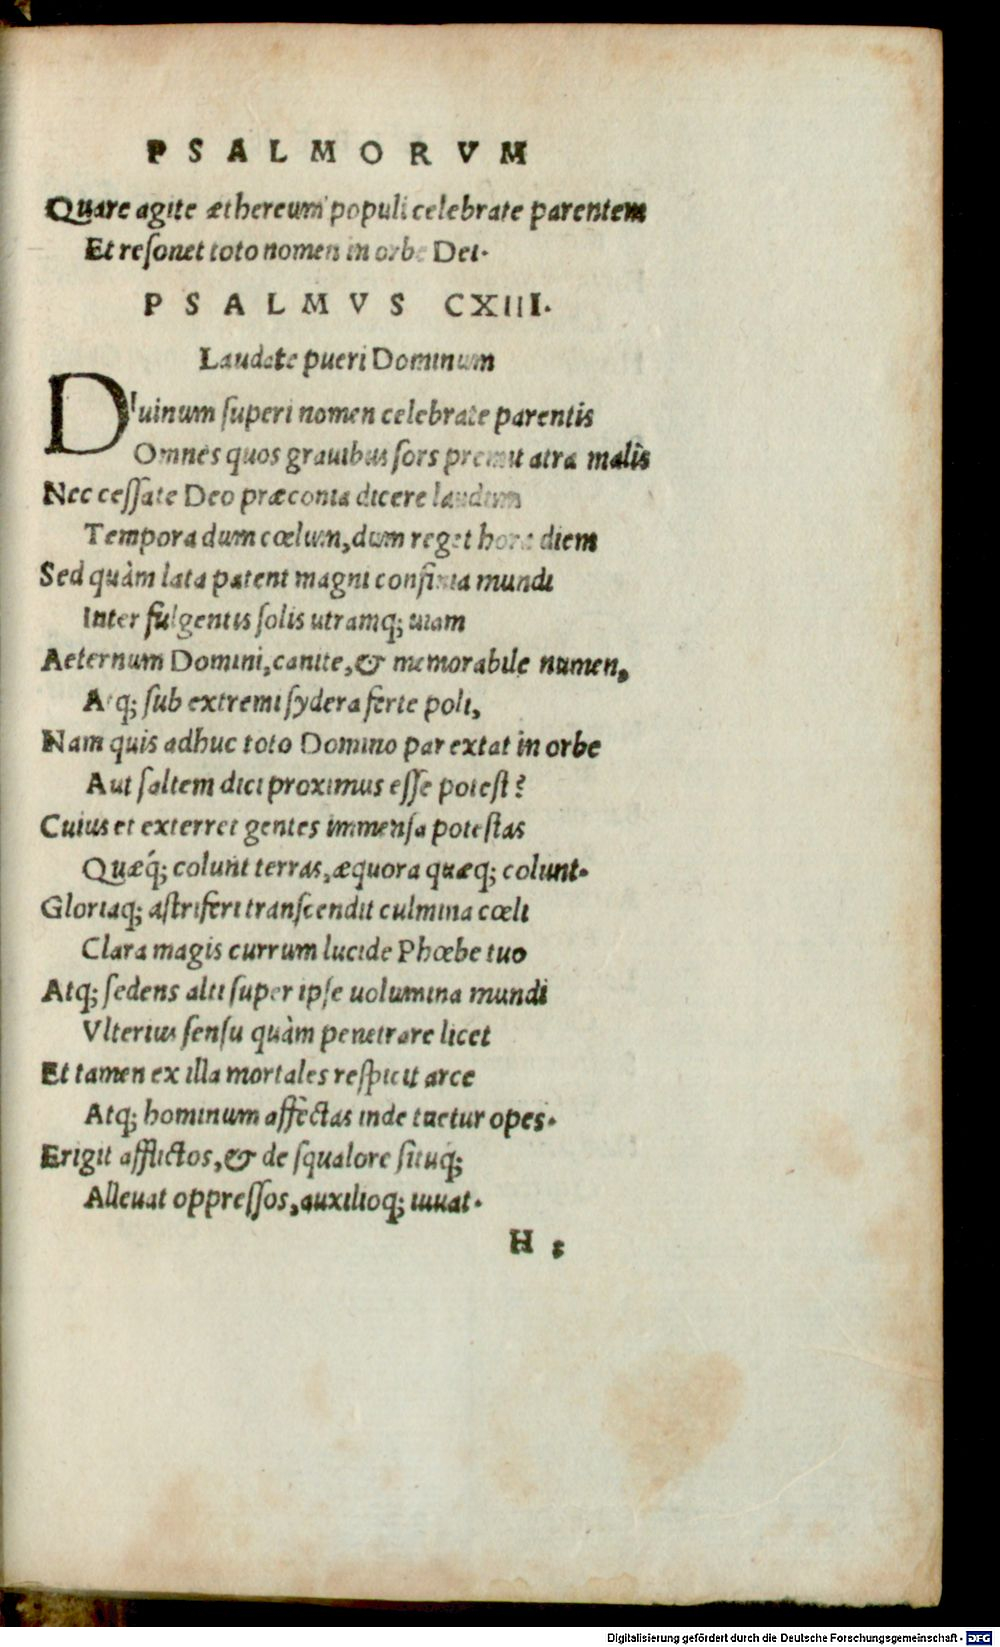 PSALMORVM
Quare agite æthereum populi celebrate parentem
Et reſonet toto nomen in orbe Dei.
PSALMVS CXIII.
Laudate pueri Dominum
Diuinum ſuperi nomen celebrate parentis
Omnes quos grauibus ſors premit atra malis
Nec ceſſate Deo præconia dicere laudum
Tempora dum cœlum, dum reget hora diem
Sed quàm lata patent magni confinia mundi
Inter fulgentis ſolis utramq; uiam
Aeternum Domini, canite, & memorabile numen,
Atq; ſub extremi ſydera ferte poli,
Nam quis adhuc toto Domino par extat in orbe
Aut ſaltem dici proximus eſſe poteſt?
Cuius et exterret gentes immenſa poteſtas
Quæq́; colunt terras, æquora quæq; colunt.
Gloriaq; aſtriferi tranſcendit culmina cœli
Clara magis currum lucide Phœbe tuo
Atq; ſedens alti ſuper ipſe uolumina mundi
Vlterius ſenſu quàm penetrare licet
Et tamen ex illa mortales reſpicit arce
Atq; hominum affectas inde tuetur opes.
Erigit afflictos, & de ſqualore ſituq;
Alleuat oppreſſos, auxilioq; iuuat.
H
Digitalisierung gefördert durch die Deutsche Forschungsgemeinschaft - DFG